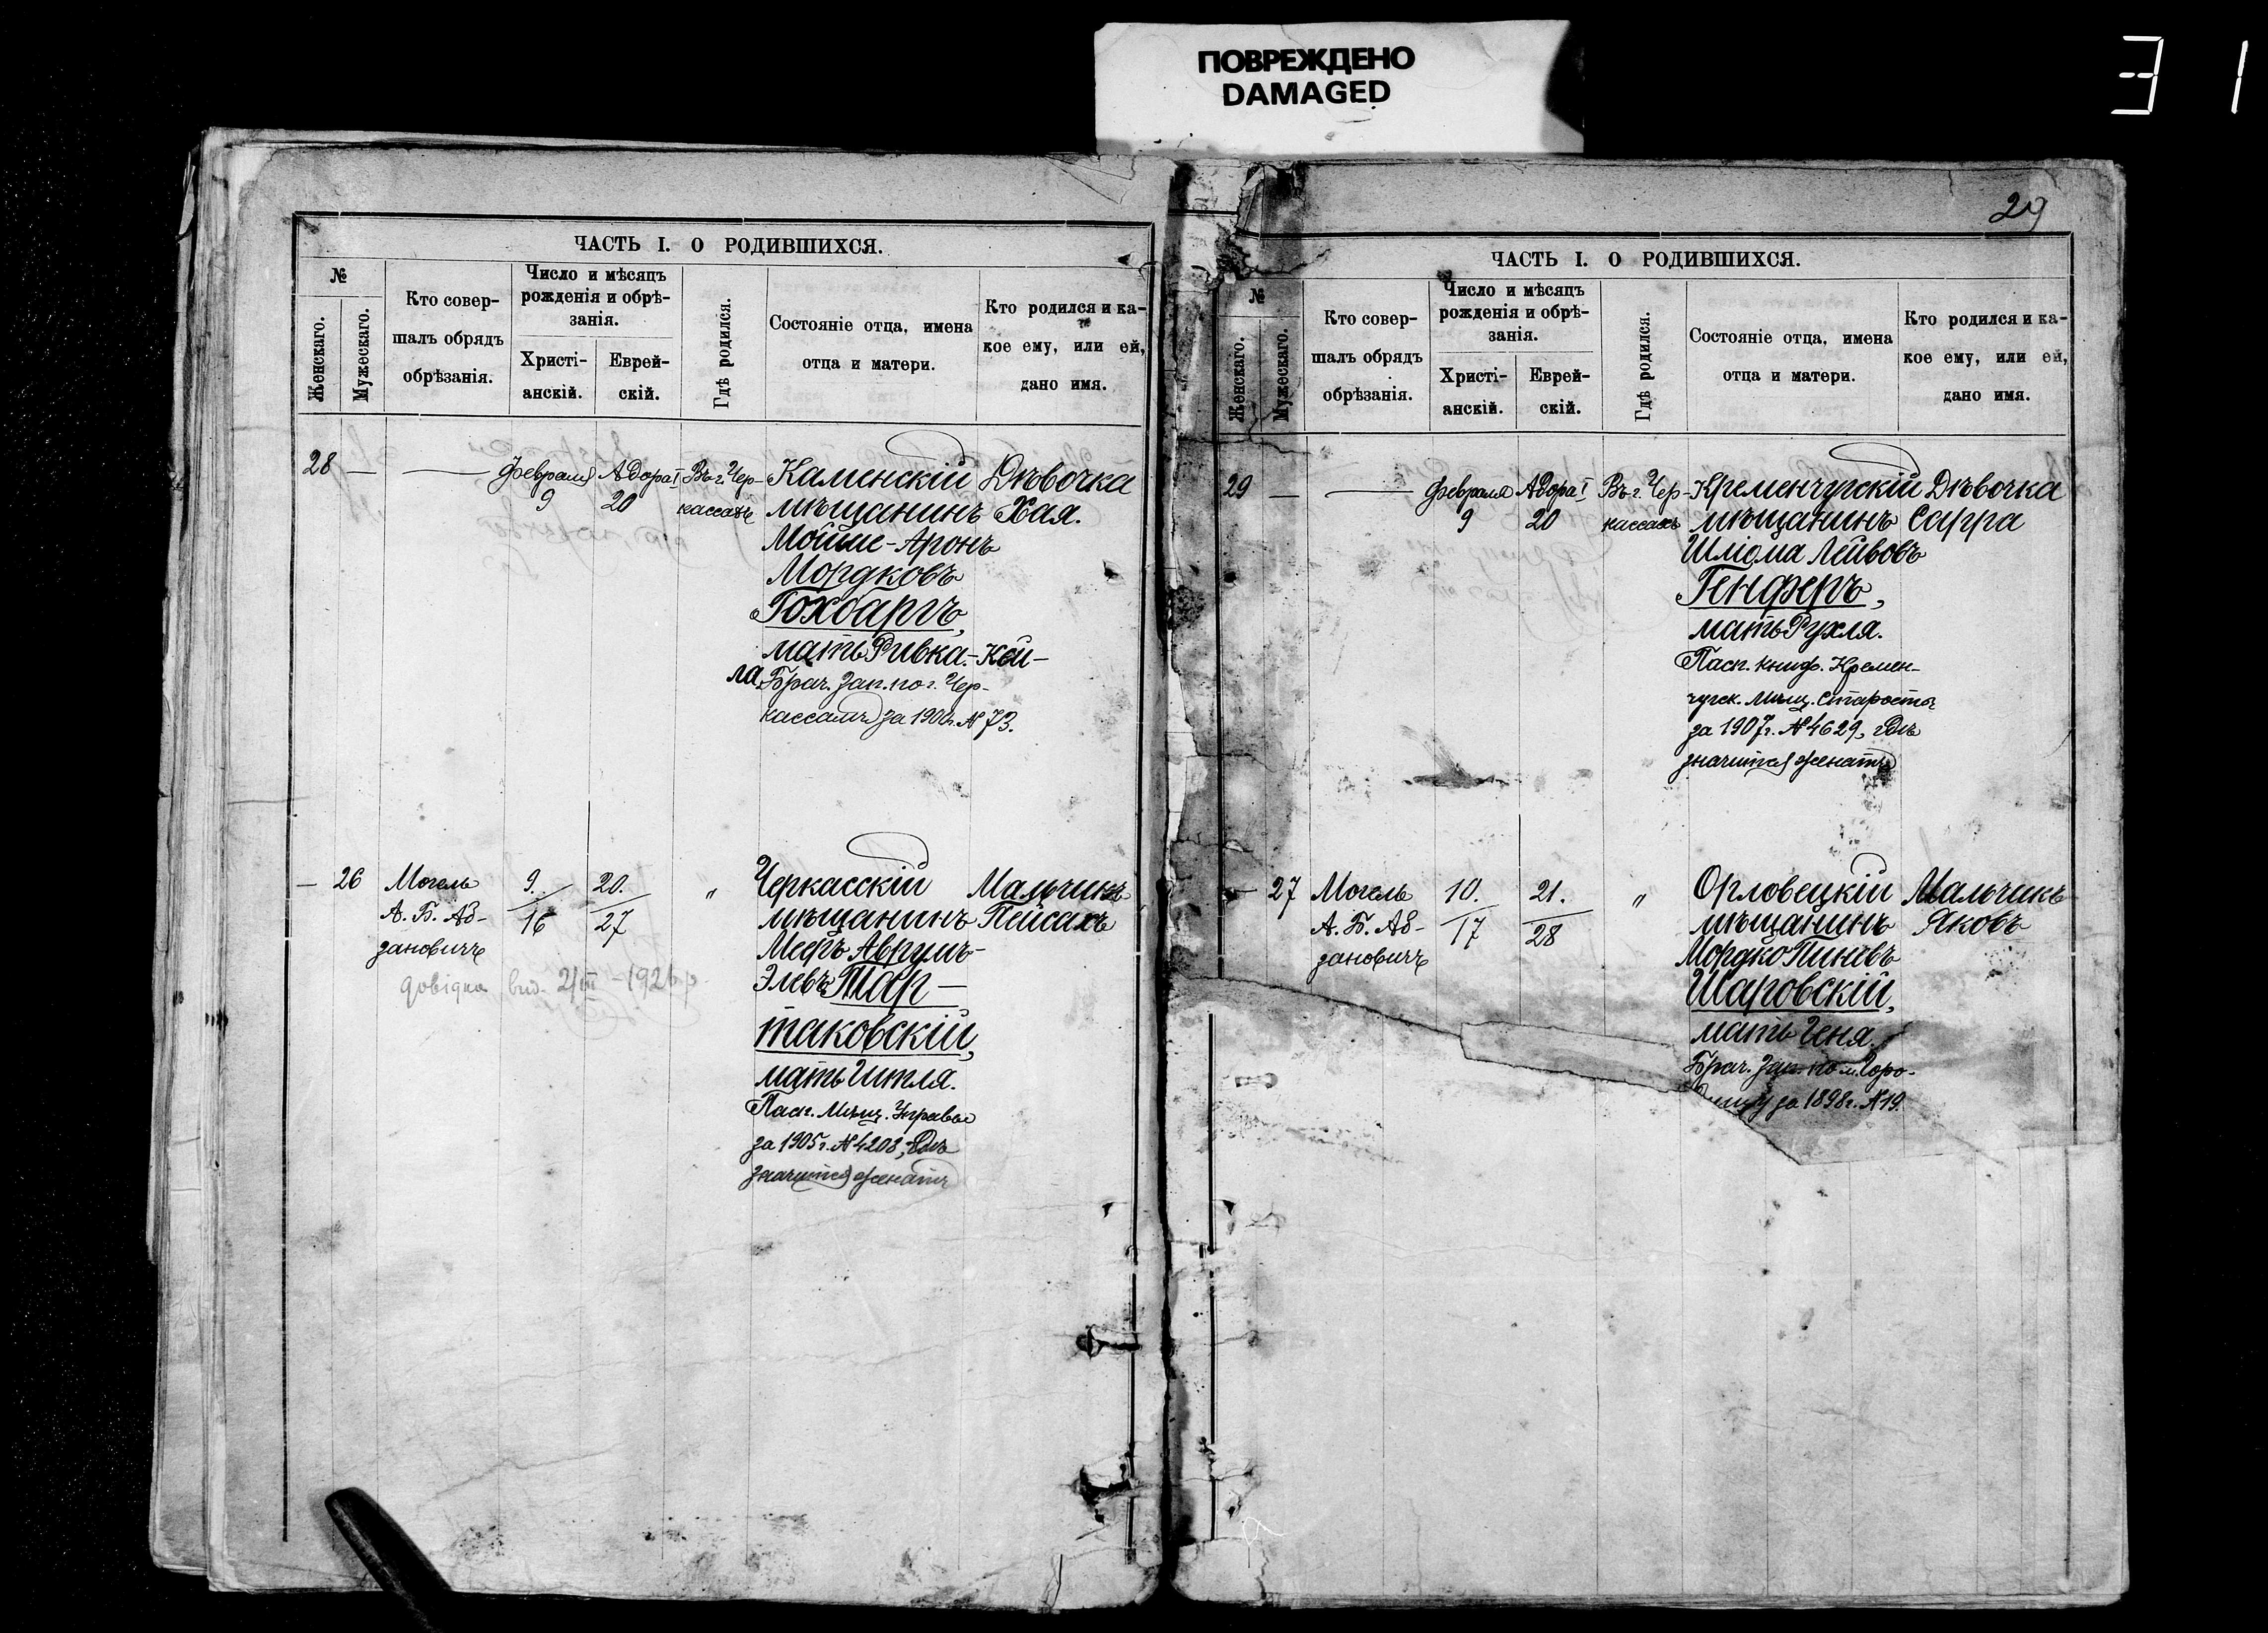 ПОВРЕЖДЕНО
DAMAGED
31
ЧАСТЬ I. О РОДИВШИХСЯ.
№
Женскаго.
Мужескаго.
Кто совер-
шалъ обрядъ
обрѣзанія.
Число и мѣсяцъ
рожденія и обрѣ-
занія.
Христі-
анскій.
Еврей-
скій.
Гдѣ родился.
Состояніе отца, имена
отца и матери.
Кто родился и ка-
кое ему, или ей,
дано имя.
28 — —
Февраля
9
Адора I
20
Въ г. Чер-
кассахъ
Каменскій
мѣщанинъ
Мойше-Аронъ
Мордковъ
Гохбаргъ,
мать Ривка-Кей-
ла
Брач. Зап. по г. Чер-
кассамъ за 1906г. № 73.
Дѣвочка
Хая.
— 26
Могель
А. Б. Аб-
зановичъ
9.
16
20.
27
"
Черкасскій
мѣщанинъ
Мееръ Аврумъ-
Элевъ Тар-
таковскій,
мать Гитля.
Пасп. Мѣщ. Управы
за 1905г. № 4208, гдѣ
значится женатъ
Мальчикъ
Пейсахъ
29
ЧАСТЬ I. О РОДИВШИХСЯ.
№
Женскаго.
Мужескаго.
Кто совер-
шалъ обрядъ
обрѣзанія.
Число и мѣсяцъ
рожденія и обрѣ-
занія.
Христі-
анскій.
Еврей-
скій.
Гдѣ родился.
Состояніе отца, имена
отца и матери.
Кто родился и ка-
кое ему, или ей,
дано имя.
29 — —
Февраля
9
Адора I
20
Въ г. Чер-
кассахъ
Кременчугскій
мѣщанинъ
Шліома Лейвовъ
Генферъ,
мать Рухля.
Пасп. книж. Кремен-
чугск. Мѣщ. Старосты
за 1907г. № 4629, гдѣ
значится женатъ
Дѣвочка
Сарра
— 27
Могель
А. Б. Аб-
зановичъ
10.
17
21.
28
"
Орловецкій
мѣщанинъ
Мордко Пиневъ
Шаровскій,
мать Геня.
Брач. Зап. по м. Горо-
дищу за 1898г. № 19.
Мальчикъ
Яковъ